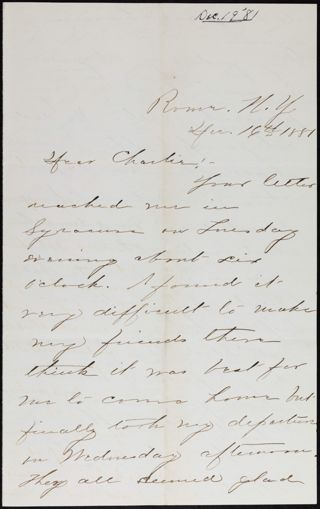 Dec. 19 '81
Rome. N. Y
Dec. 1881
Dear Charlie;-
Your letter
reached me in
Syracuse on Tuesday
evening about six
o'clock. I found it
very difficult to make
my friends there
think it was best for
me to come home but
finally took my departure
on Wednesday afternoon.
They all seemed glad